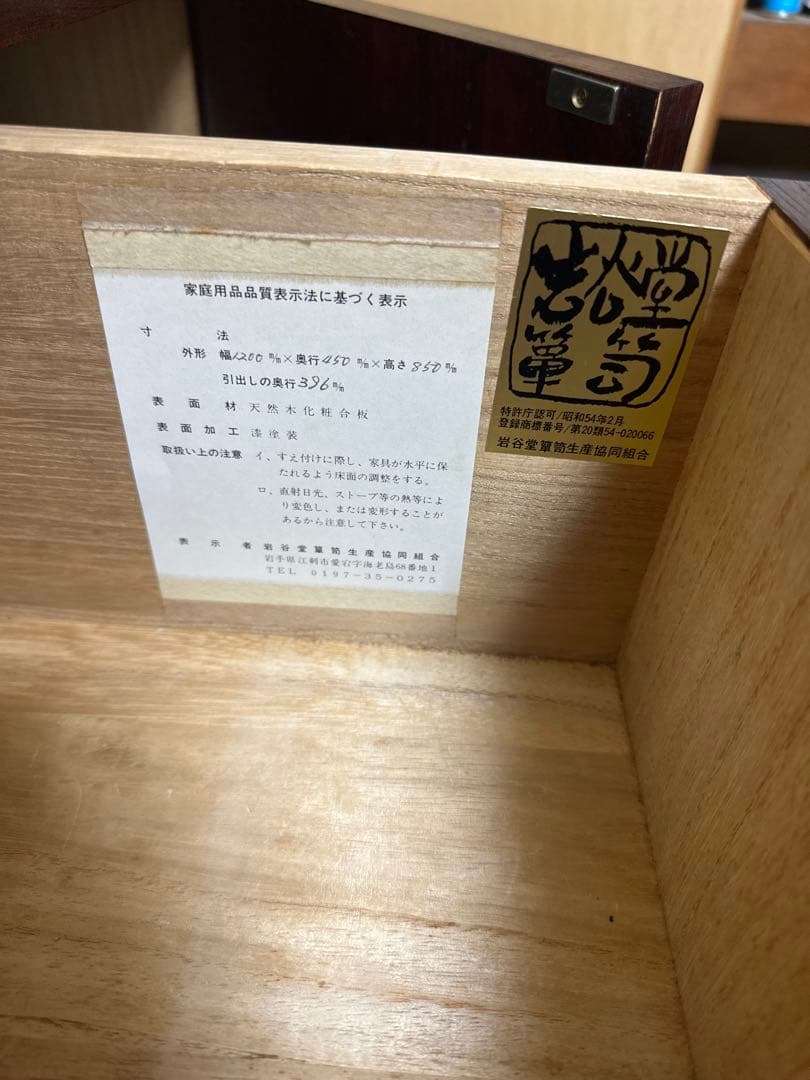 家庭用品品質表示法に基づく表示
寸 法
外形 幅1200㎜×奥行450㎜×高さ850㎜
引出しの奥行396㎜
表面材 天然木化粧合板
表面加工 漆塗装
取扱い上の注意 イ、すえ付けに際し、家具が水平に保
たれるよう床面の調整をする。
ロ、直射日光、ストーブ等の熱等によ
り変色し、または変形することが
あるから注意して下さい。
表示者 岩谷堂簞笥生産協同組合
岩手県江刺市愛宕字海老島68番地1
TEL 0197-35-0275
岩谷堂簞笥
特許庁認可/昭和54年2月
登録商標番号/第20類54-020066
岩谷堂簞笥生産協同組合